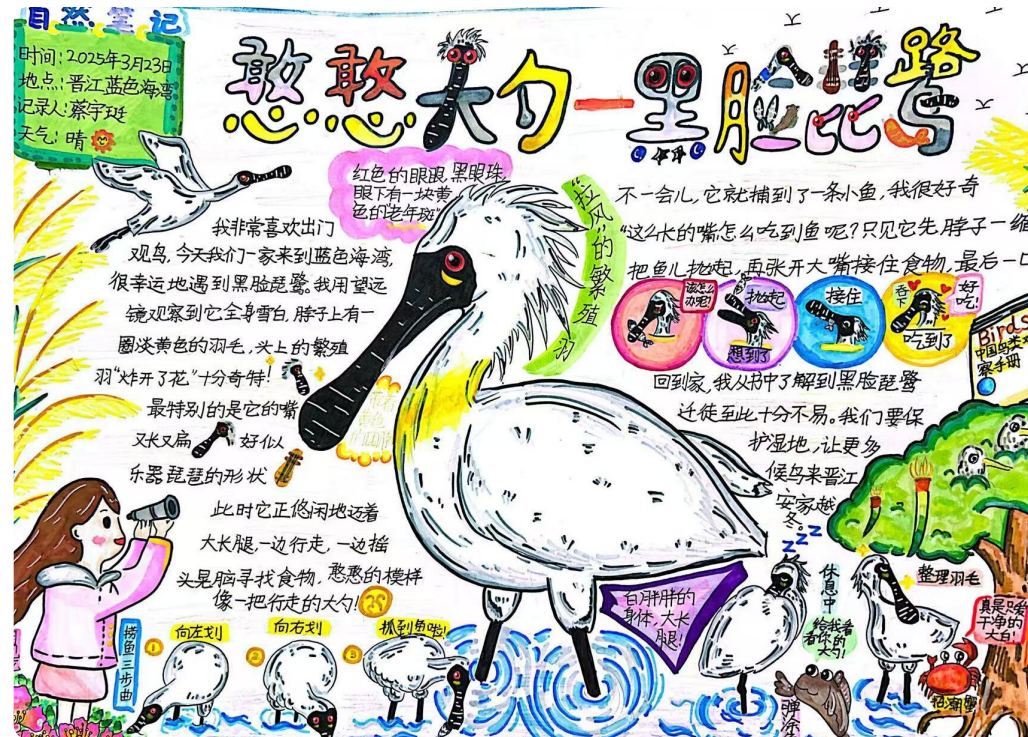 自然笔记
时间:2025年3月23日
地点:晋江蓝色海湾
记录人:蔡宇珽
天气:晴
憨憨大勺—黑脸琵鹭
红色的眼眼,黑眼珠,
眼下有一块黄
色的"老年斑"
"拉风"的繁殖羽
我非常喜欢出门
观鸟,今天我们一家来到蓝色海湾,
很幸运地遇到黑脸琵鹭,我用望远
镜观察到它全身雪白,脖子上有一
圈淡黄色的羽毛,头上的繁殖
羽"炸开了花"十分奇特!
最特别的是它的嘴
又长又扁 好似
乐器琵琶的形状
此时它正悠闲地迈着
大长腿,一边行走,一边摇
头晃脑寻找食物,憨憨的模样
像一把行走的大勺!
不一会儿,它就捕到了一条小鱼,我很好奇
"这么长的嘴怎么吃到鱼呢?只见它先脖子一缩
把鱼儿抛起,再张开大嘴接住食物,最后一口
该怎么办呢?
想到了
抛起
接住
吞下
好吃!
吃到了
Birds
中国鸟类观
察手册
回到家,我从书中了解到黑脸琵鹭
迁徙至此十分不易。我们要保
护湿地,让更多
候鸟来晋江
安家越
冬。
zzz
捞鱼三步曲
① 向左划
② 向右划
③ 抓到鱼啦!
白胖胖的
身体,大长
腿!
休息中
给我看
看你的
大勺
整理羽毛
真是只爱
干净的
大白!
招潮蟹
弹涂